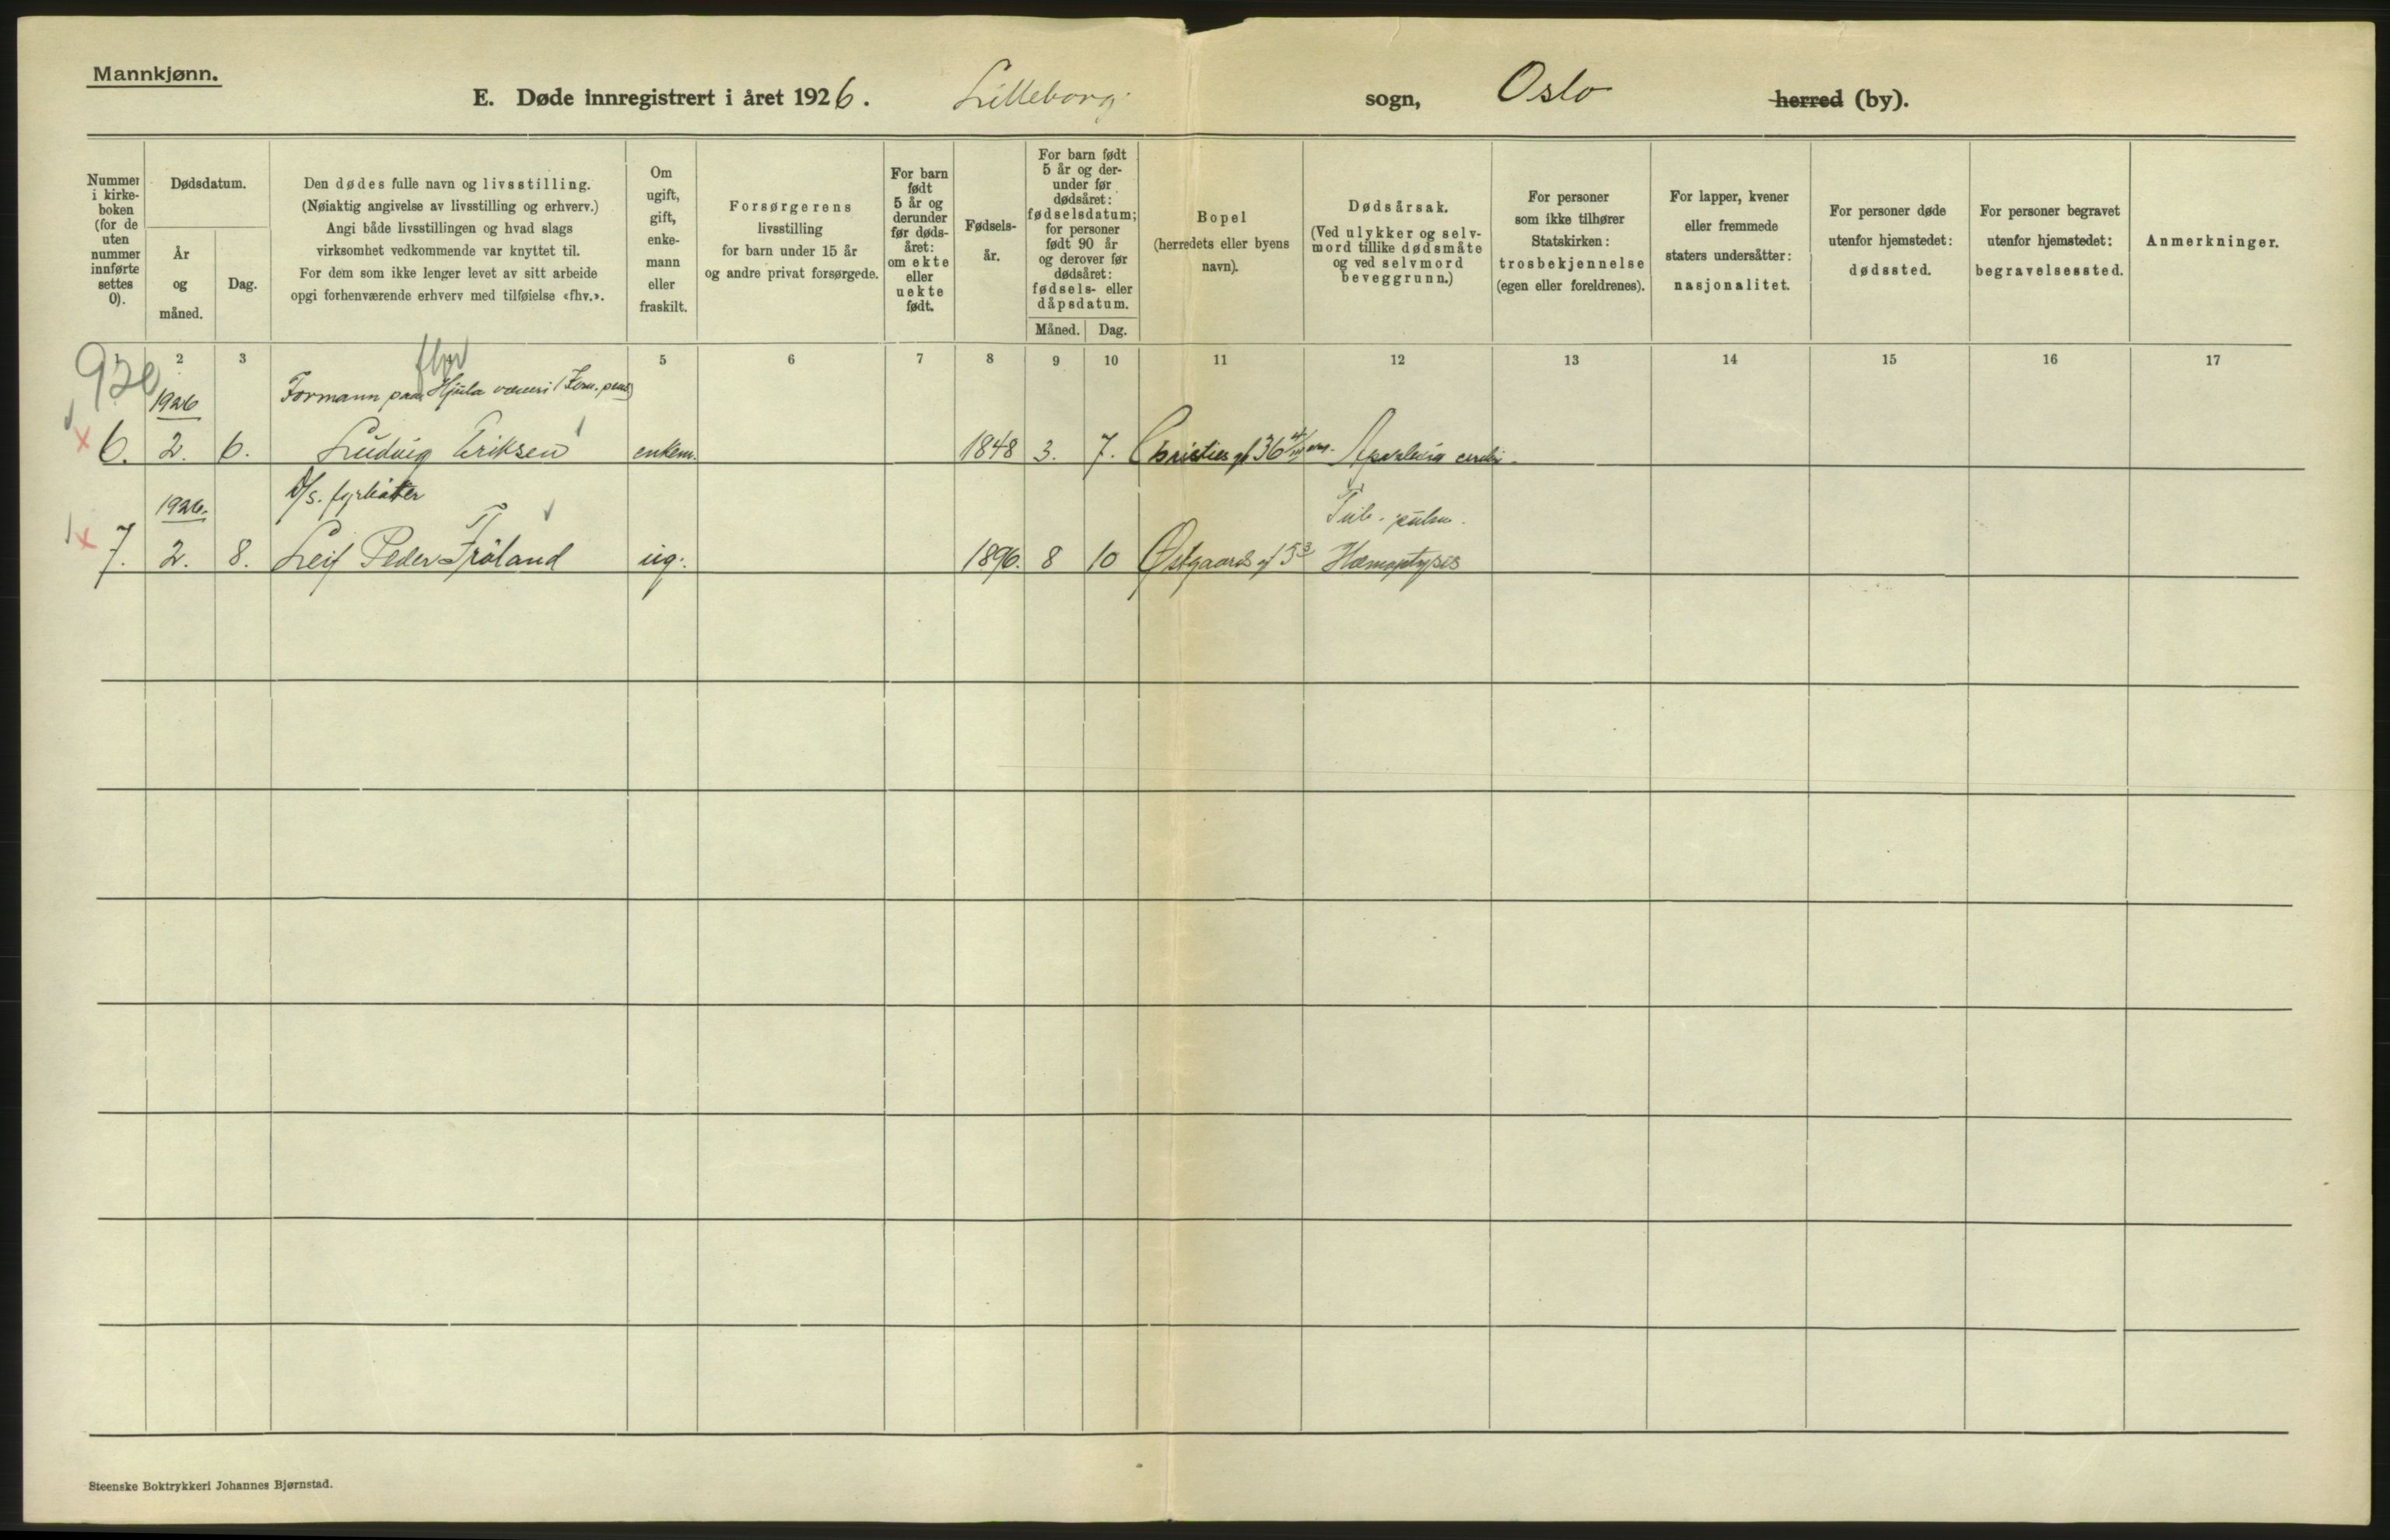 Mannkjønn.
E. Døde innregistrert i året 1926. Lilleborg sogn, Oslo herred (by).
Nummer i kirkeboken (for de uten nummer innførte settes 0).
Dødsdatum.
År og måned.
Dag.
Den dødes fulle navn og livsstilling.
(Nøiaktig angivelse av livsstilling og erhverv.)
Angi både livsstillingen og hvad slags
virksomhet vedkommende var knyttet til.
For dem som ikke lenger levet av sitt arbeide
opgi forhenværende erhverv med tilføielse «fhv.».
Om ugift, gift, enkemann eller fraskilt.
Forsørgerens
livsstilling
for barn under 15 år
og andre privat forsørgede.
For barn født 5 år og derunder før dødsåret: om ekte eller uekte født.
Fødselsår.
For barn født
5 år og der-
under før
dødsåret:
fødselsdatum;
for personer
født 90 år
og derover før
dødsåret:
fødsels- eller
dåpsdatum.
Måned. Dag.
Bopel
(herredets eller byens
navn).
Dødsårsak.
(Ved ulykker og selv-
mord tillike dødsmåte
og ved selvmord
beveggrunn.)
For personer
som ikke tilhører
Statskirken:
trosbekjennelse
(egen eller foreldrenes).
For lapper, kvener
eller fremmede
staters undersåtter:
nasjonalitet.
For personer døde
utenfor hjemstedet:
dødssted.
For personer begravet
utenfor hjemstedet:
begravelsessted.
Anmerkninger.
2 3 5 6 7 8 9 10 11 12 13 14 15 16 17
fhv
1926 Formann paa Hjula væveri
6. 2. 6. Ludvig Eriksen enkem. 1848 3. 7. Christies gt 36
1926. D/s. fyrbøter Tub. pulm.
7. 2. 8. Leif Peder Frøland ug. 1896. 8 10 Østgaards gt 5 Hæmoptysis
Steenske Boktrykkeri Johannes Bjørnstad.